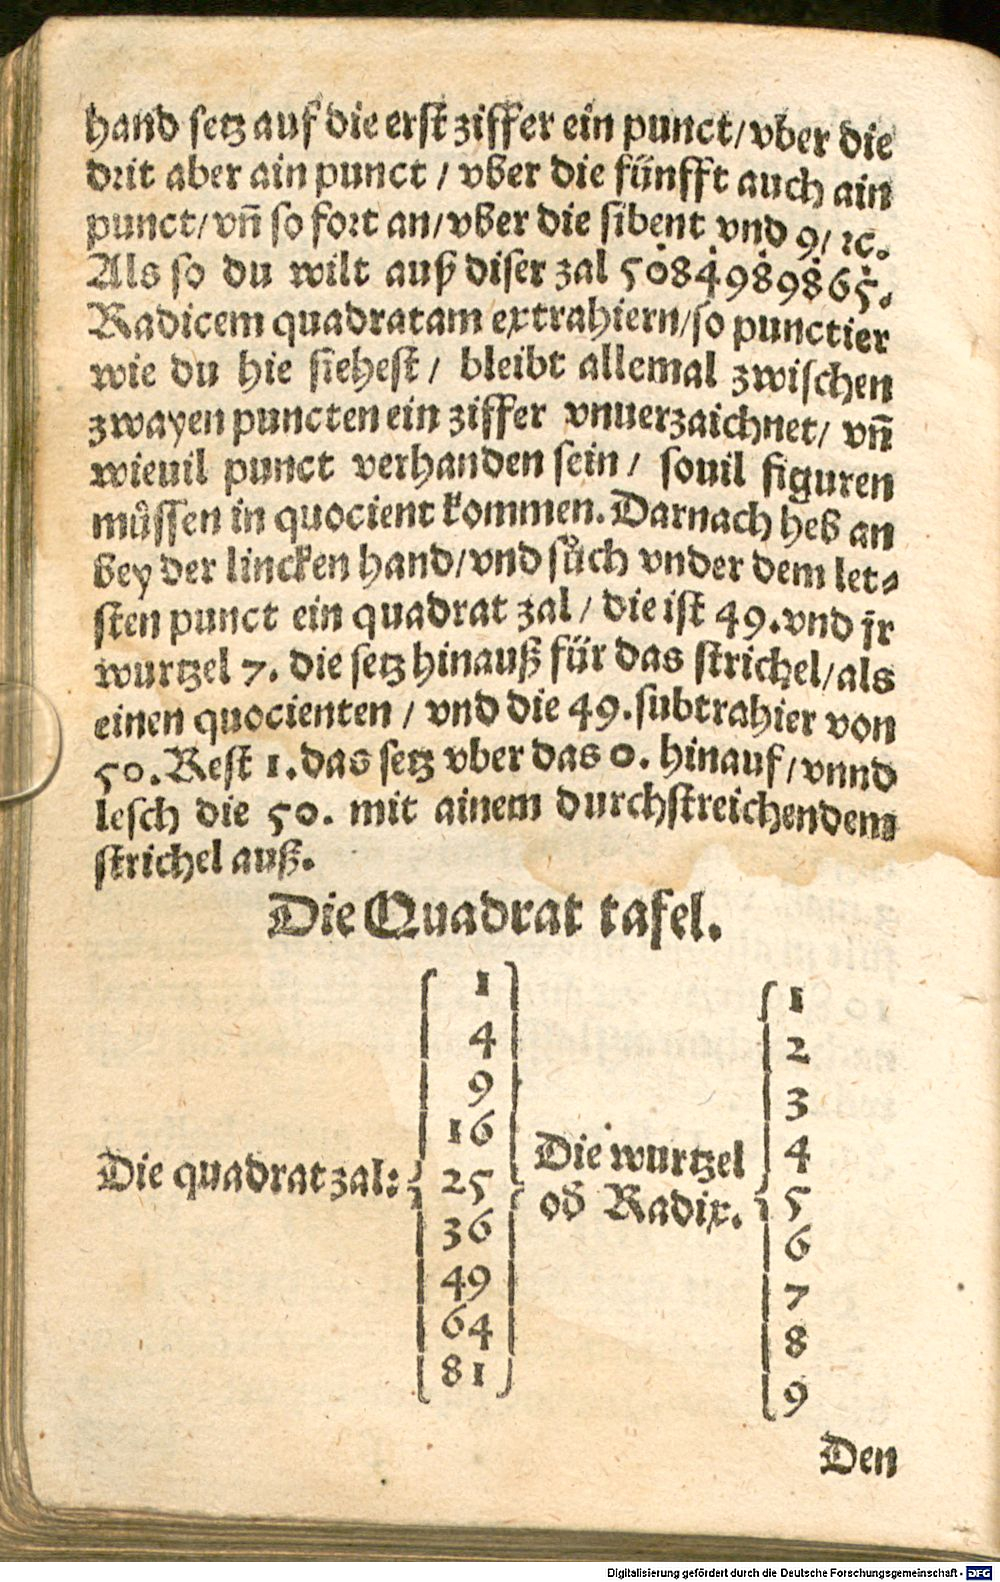 hand setz auf die erst ziffer ein punct/vber die
drit aber ain punct / vber die fünfft auch ain
punct/ vñ so fort an/vber die sibent vnd 9/ ꝛc.
Als so du wilt auß diser zal 5084989865.
Radicem quadratam extrahiern/so punctier
wie du hie siehest / bleibt allemal zwischen
zwayen puncten ein ziffer vnuerzaichnet/ vñ
wieuil punct verhanden sein / souil figuren
muͤssen in quocient kommen. Darnach heb an
bey der lincken hand/vnd suͦch vnder dem let⸗
sten punct ein quadrat zal / die ist 49. vnd jr
wurtzel 7. die setz hinauß für das strichel/als
einen quocienten / vnd die 49. subtrahier von
50. Rest 1. das setz vber das 0. hinauf/vnnd
lesch die 50. mit ainem durchstreichendem
strichel auß.
Die Quadrat tafel.
Die quadrat zal:
1
4
9
16
25
36
49
64
81
Die wurtzel
ob Radix.
1
2
3
4
5
6
7
8
9
Den
Digitalisierung gefördert durch die Deutsche Forschungsgemeinschaft - DFG